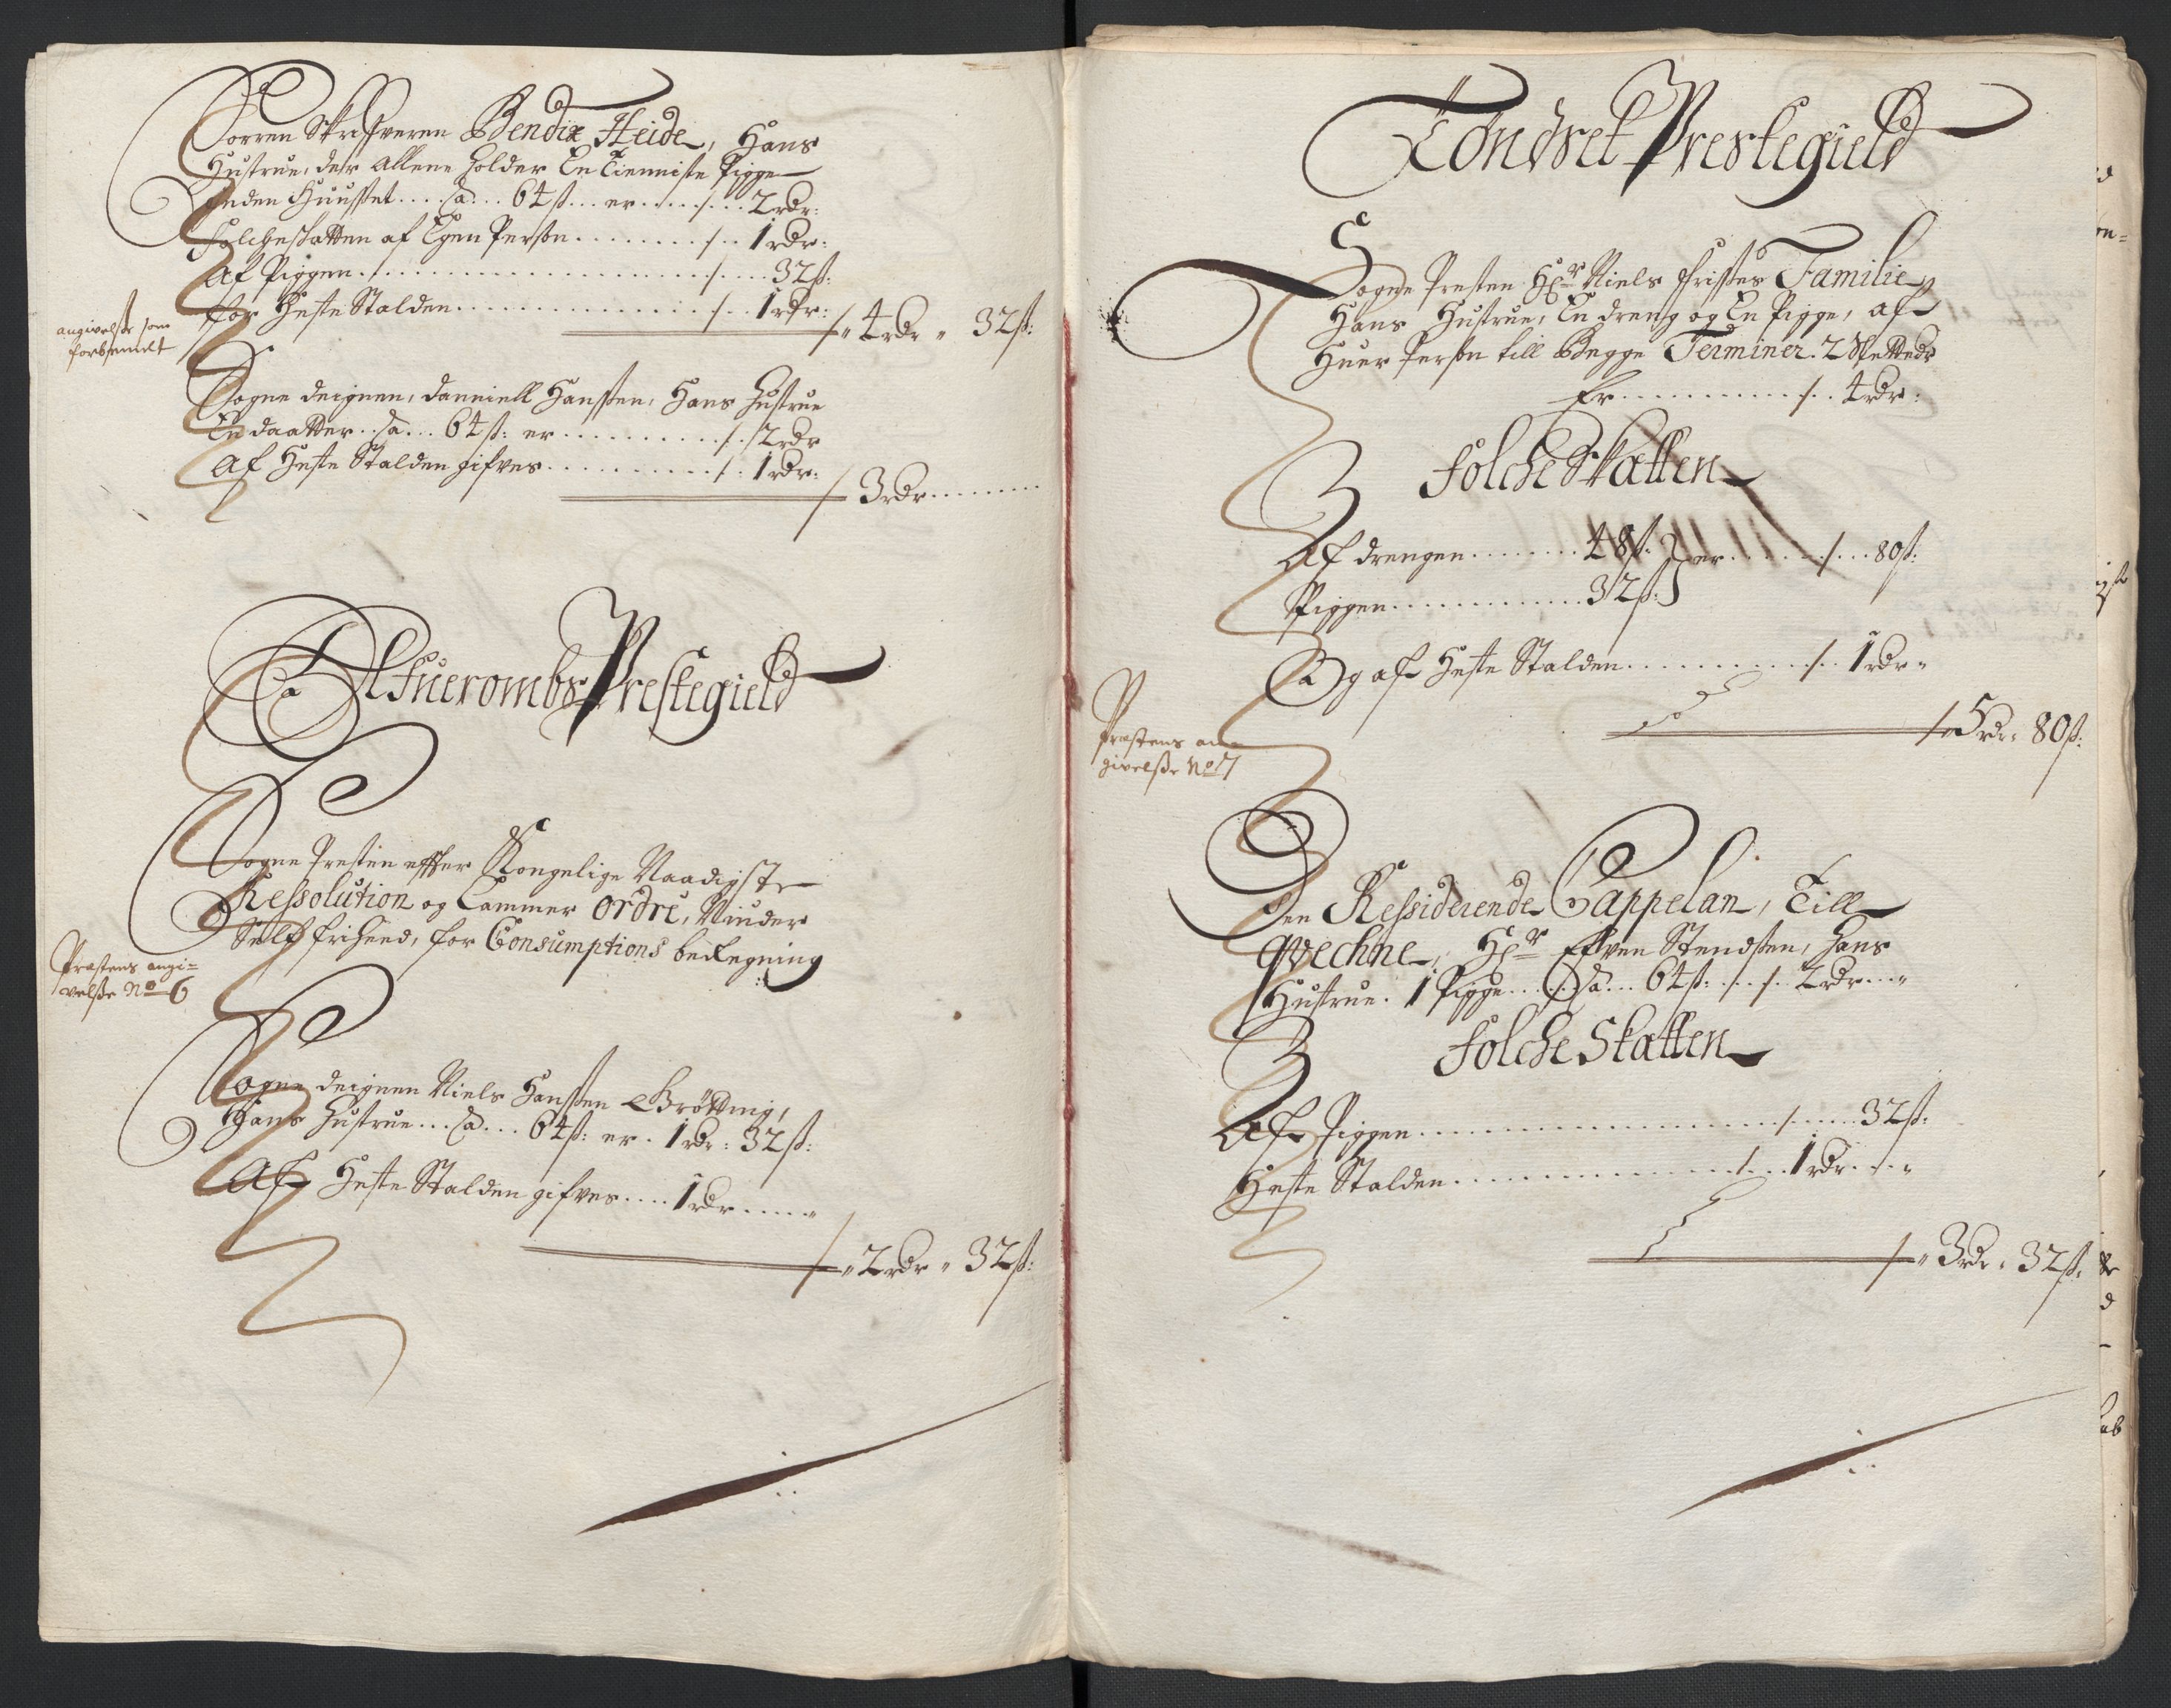 Sorren Skrifveren Bendix Heide, Hans
Hustrue, der Allene holder En Tienniste Pigge
inden Huusset .... a ... 64 ß ... er ..... /... 2 rdr:
Folcheskatten af Egen Person ........ /.. 1 rdr:
Af Piggen ..................... /.... 32 ß:
for Heste Stalden ................ /.. 1 rdr:
/" 4 rdr " 32 ß:
angivelsse som
forbemelt
Sogne deignen, Danniell Hanssen, Hans Hustrue
En daatter .. a ... 64 ß: er .......... /. 2 rdr
Af Heste Stalden gifves .......... /. 1 rdr:
/ 3 rdr ........
Alfuerombs Prestegield
Sogne Presten effter Kongelige Naadigste
Ressolution og Cammer Ordre, Niuder
Self friheed, for Consumptions betegning
Præstens angi=
velsse No 6
Sogne deignen Niels Hanssen Brötting,
Hans Hustrue ... a ... 64 ß: er . 1 rdr: 32 ß:
Af Heste Stalden gifves .... 1 rdr ....
/" 2 rdr " 32 ß:
Tondset Prestegield
Sogne Presten Hr Niels Frisses Familie
Hans Hustrue, En dreng og En Pigge, af
Huer Person till Begge Terminer. 2
Er ......... /.. 4 rdr:
Folche Skatten
Af drengen ........ 48 ß: er ...... /... 80 ß:
Piggen ............ 32 ß:
Og af Heste Stalden ......... /.. 1 rdr "
/" 5 rdr: 80 ß:
Præstens an=
givelsse No 7
Den Ressiderende Cappelan, Till
Qvechne, Hr Efven Stendsten, Hans
Hustrue. 1 Pigge .... a ... 64 ß: ... /.. 2 rdr ... "
Folche Skatten
Af Piggen ..................... /..... 32 ß:
Heste Stalden ................ /... 1 rdr ... "
/" 3 rdr: 32 ß: